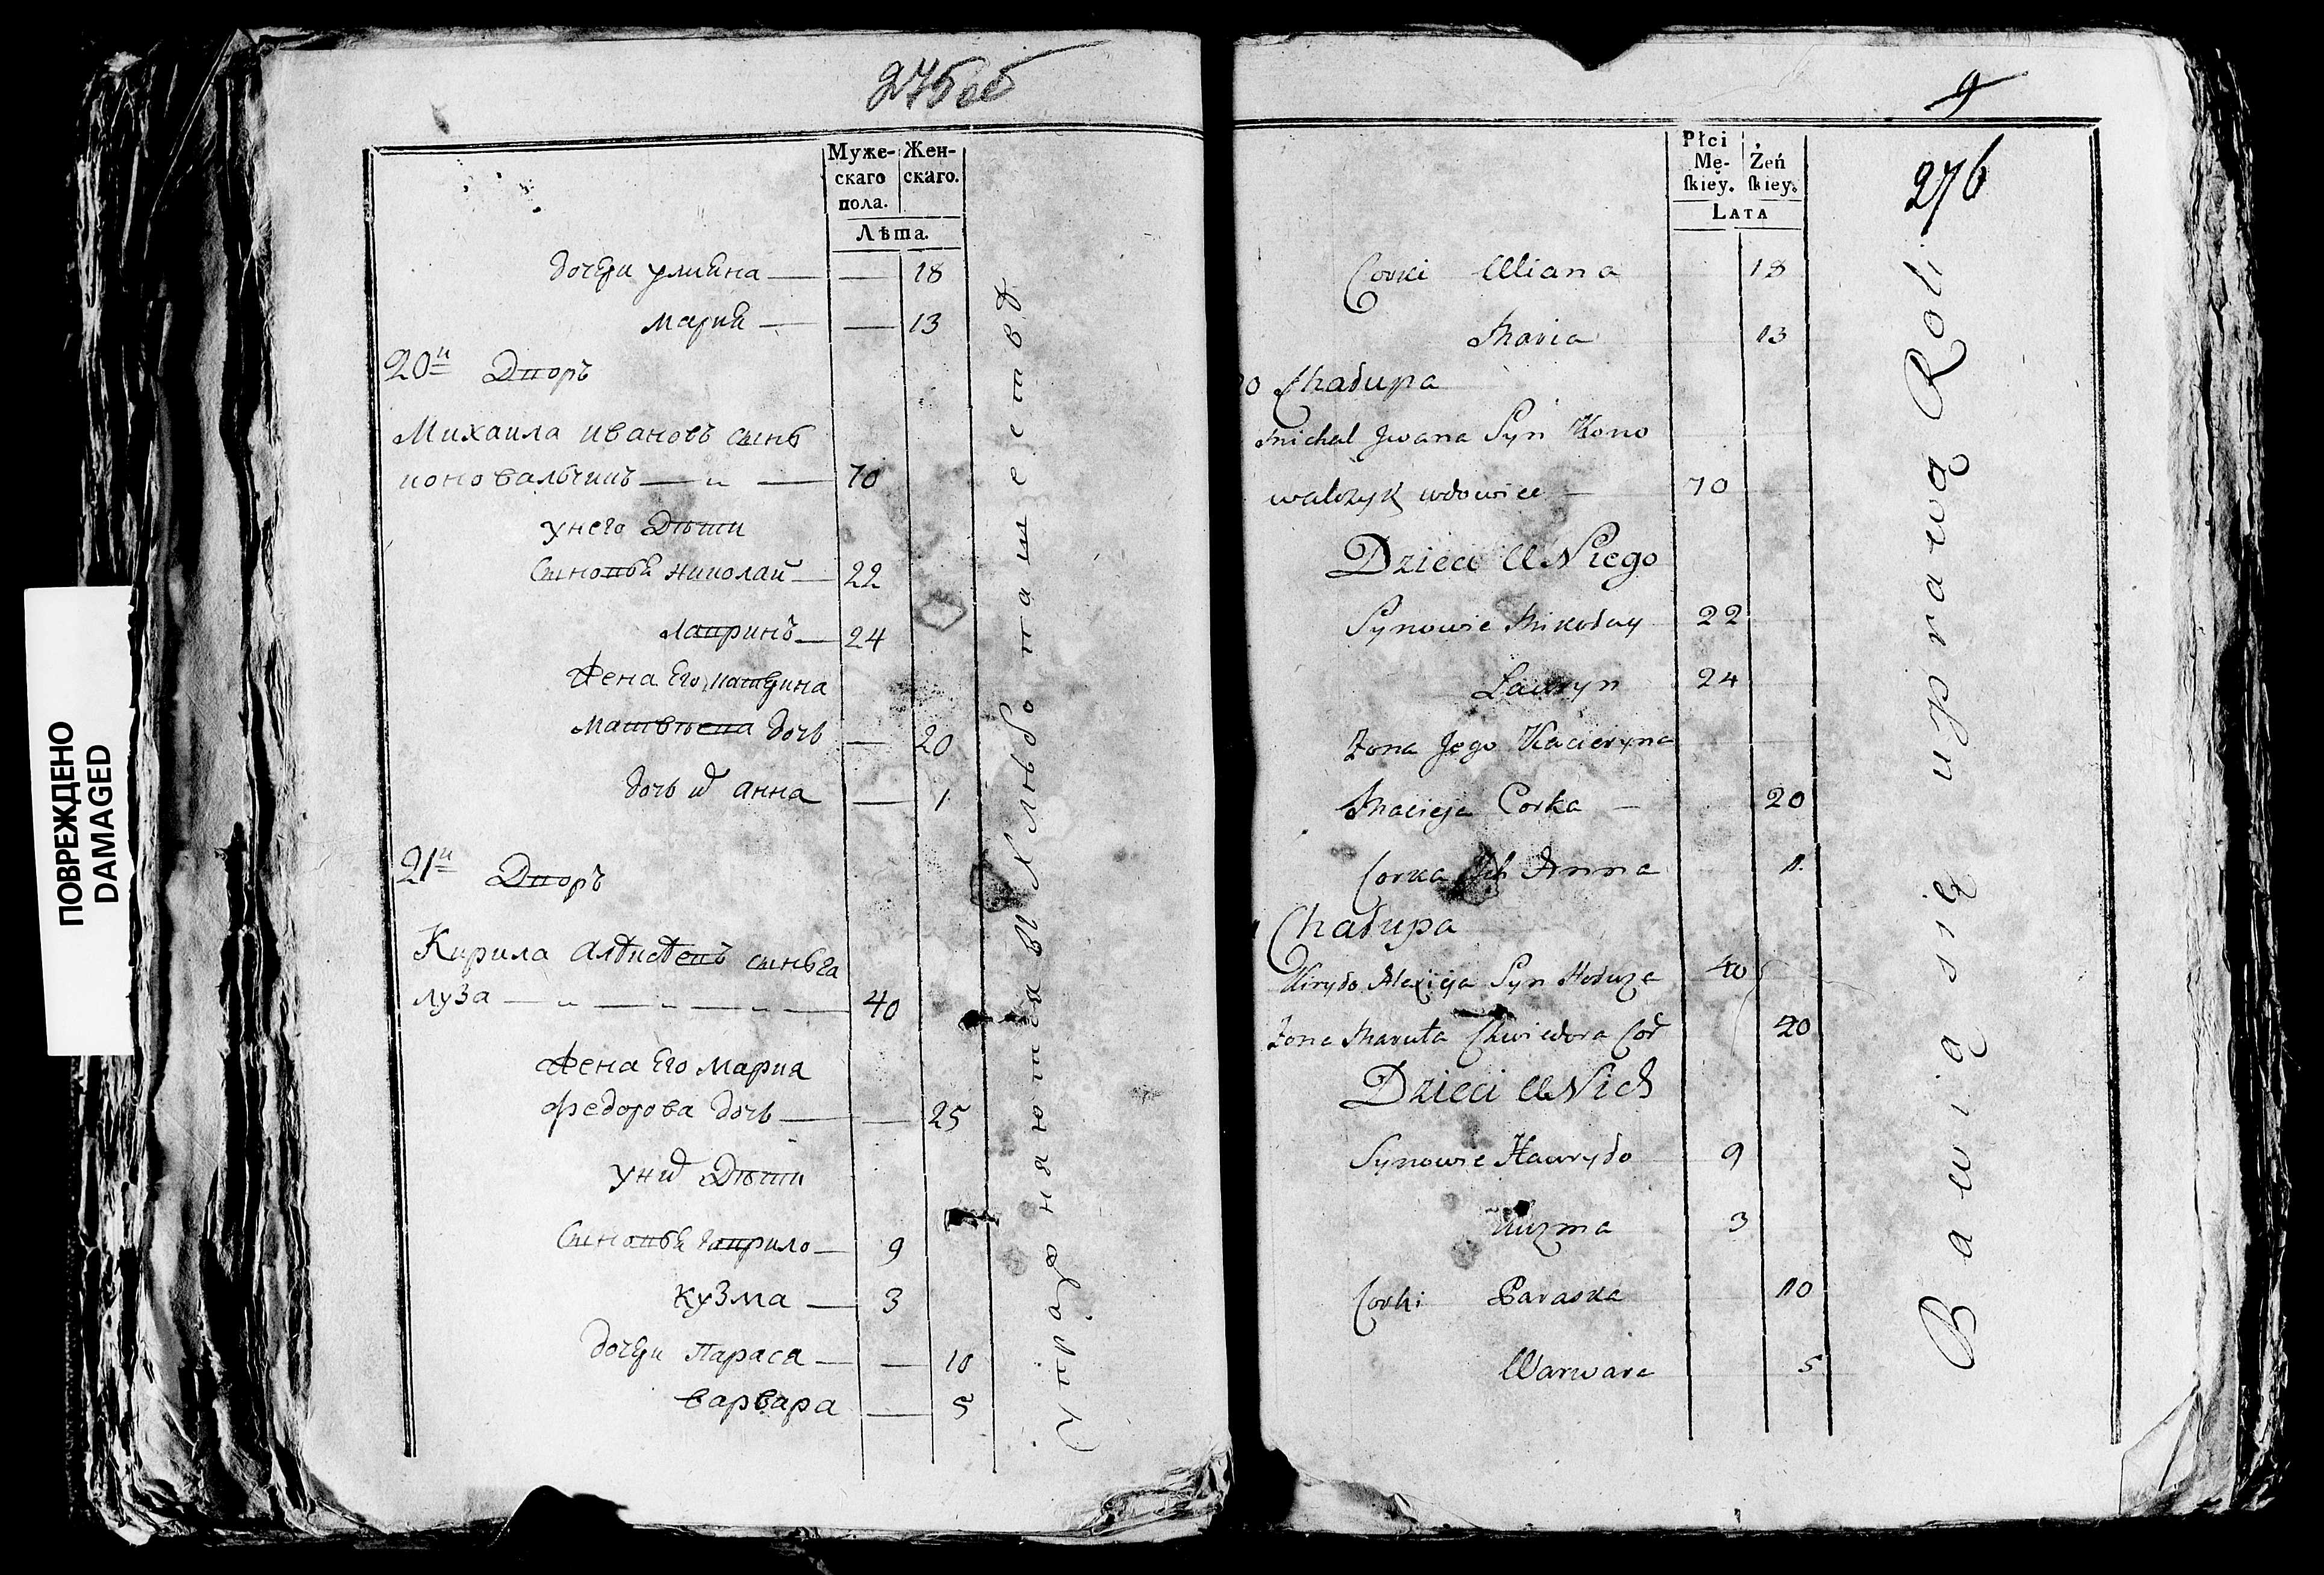 ПОВРЕЖДЕНО
DAMAGED
275 об
Муже-
скаго
пола.
Жен-
скаго.
Лѣта.
дочери улияна — — 18
Мария — — 13
20й Дворъ
Михаила ивановъ сынъ
коновальчикъ — „ — 70
унего Дѣти
Сыновья николай — 22
лавринъ — 24
жена Его катерина
матвѣева дочь — 20
дочь их анна — 1
21й Дворъ
Кирила алексѣевъ сынъ га
луза — „ — „ — „ — 40
жена Его Мария
федорова дочь — — 25
уних Дѣти
Сыновья гаврило — 9
кузма — 3
дочери Параса — — 10
варвара — 5
Упражняютса в Хлѣбопашествѣ
9
276
Płci
Mę-
ſkieÿ.
Żeń
ſkiey.
LATA
Corki Uliana 18
Maria 13
20 Chałupa
Michał Jwana Syn Kono
walczyk wdowiec — 70
Dzieci U Niego
Synowie Mikołay 22
Lauryn 24
Żona Jego Kacieryna
Macieja Corka — 20
Corka Ich Anna 1.
Chałupa
Kiryło Alexieja Syn Hołuza 40
Żona Maruta Chwiedora Cor 20
Dzieci U Nich
Synowie Hawryło 9
Kuzma 3
Corki Paraska 10
Warwara 5
Bawią się uprawą Roli